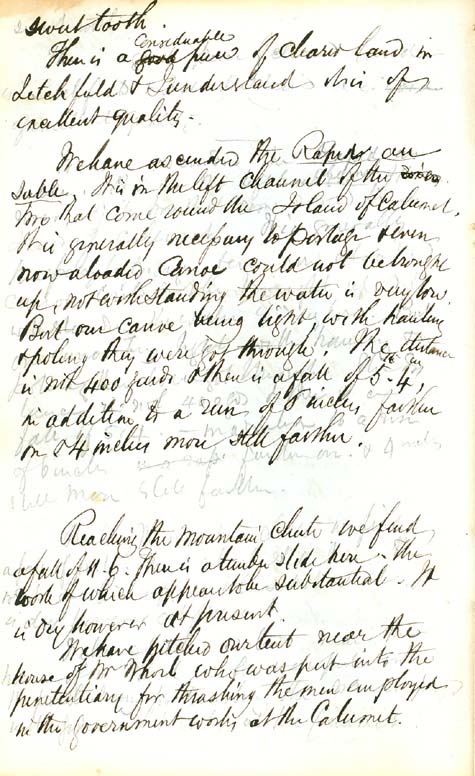 sweet tooth.
Considerable
There is a good piece of cleared land in
Litchfield & Sunderland this is of
excellent quality.
We have ascended the Rapids au
Sable. It is in the left channel of the
two that come round the Island of Calumet.
It is generally necessary to portage & even
now a loaded Canoe could not be brought
up, notwithstanding the water is very low.
But our canoe being light, with hauling
& poling they were got through. The distance
is not 400 yards & there is a fall of 5-4,
in addition to a run of 6 inches farther
on & 4 inches more still farther.
of 6 inch farther on. & 4 inches
still more still farther.
Reaching the Mountain Chute we find
a fall of 11-6. There is a timber slide here. The
work of which appears to be substantial. It
is dry however at present.
We have pitched our tent near the
house of Mr who was put into the
penitentiary for thrashing the men employed
in the government works at the Calumet.